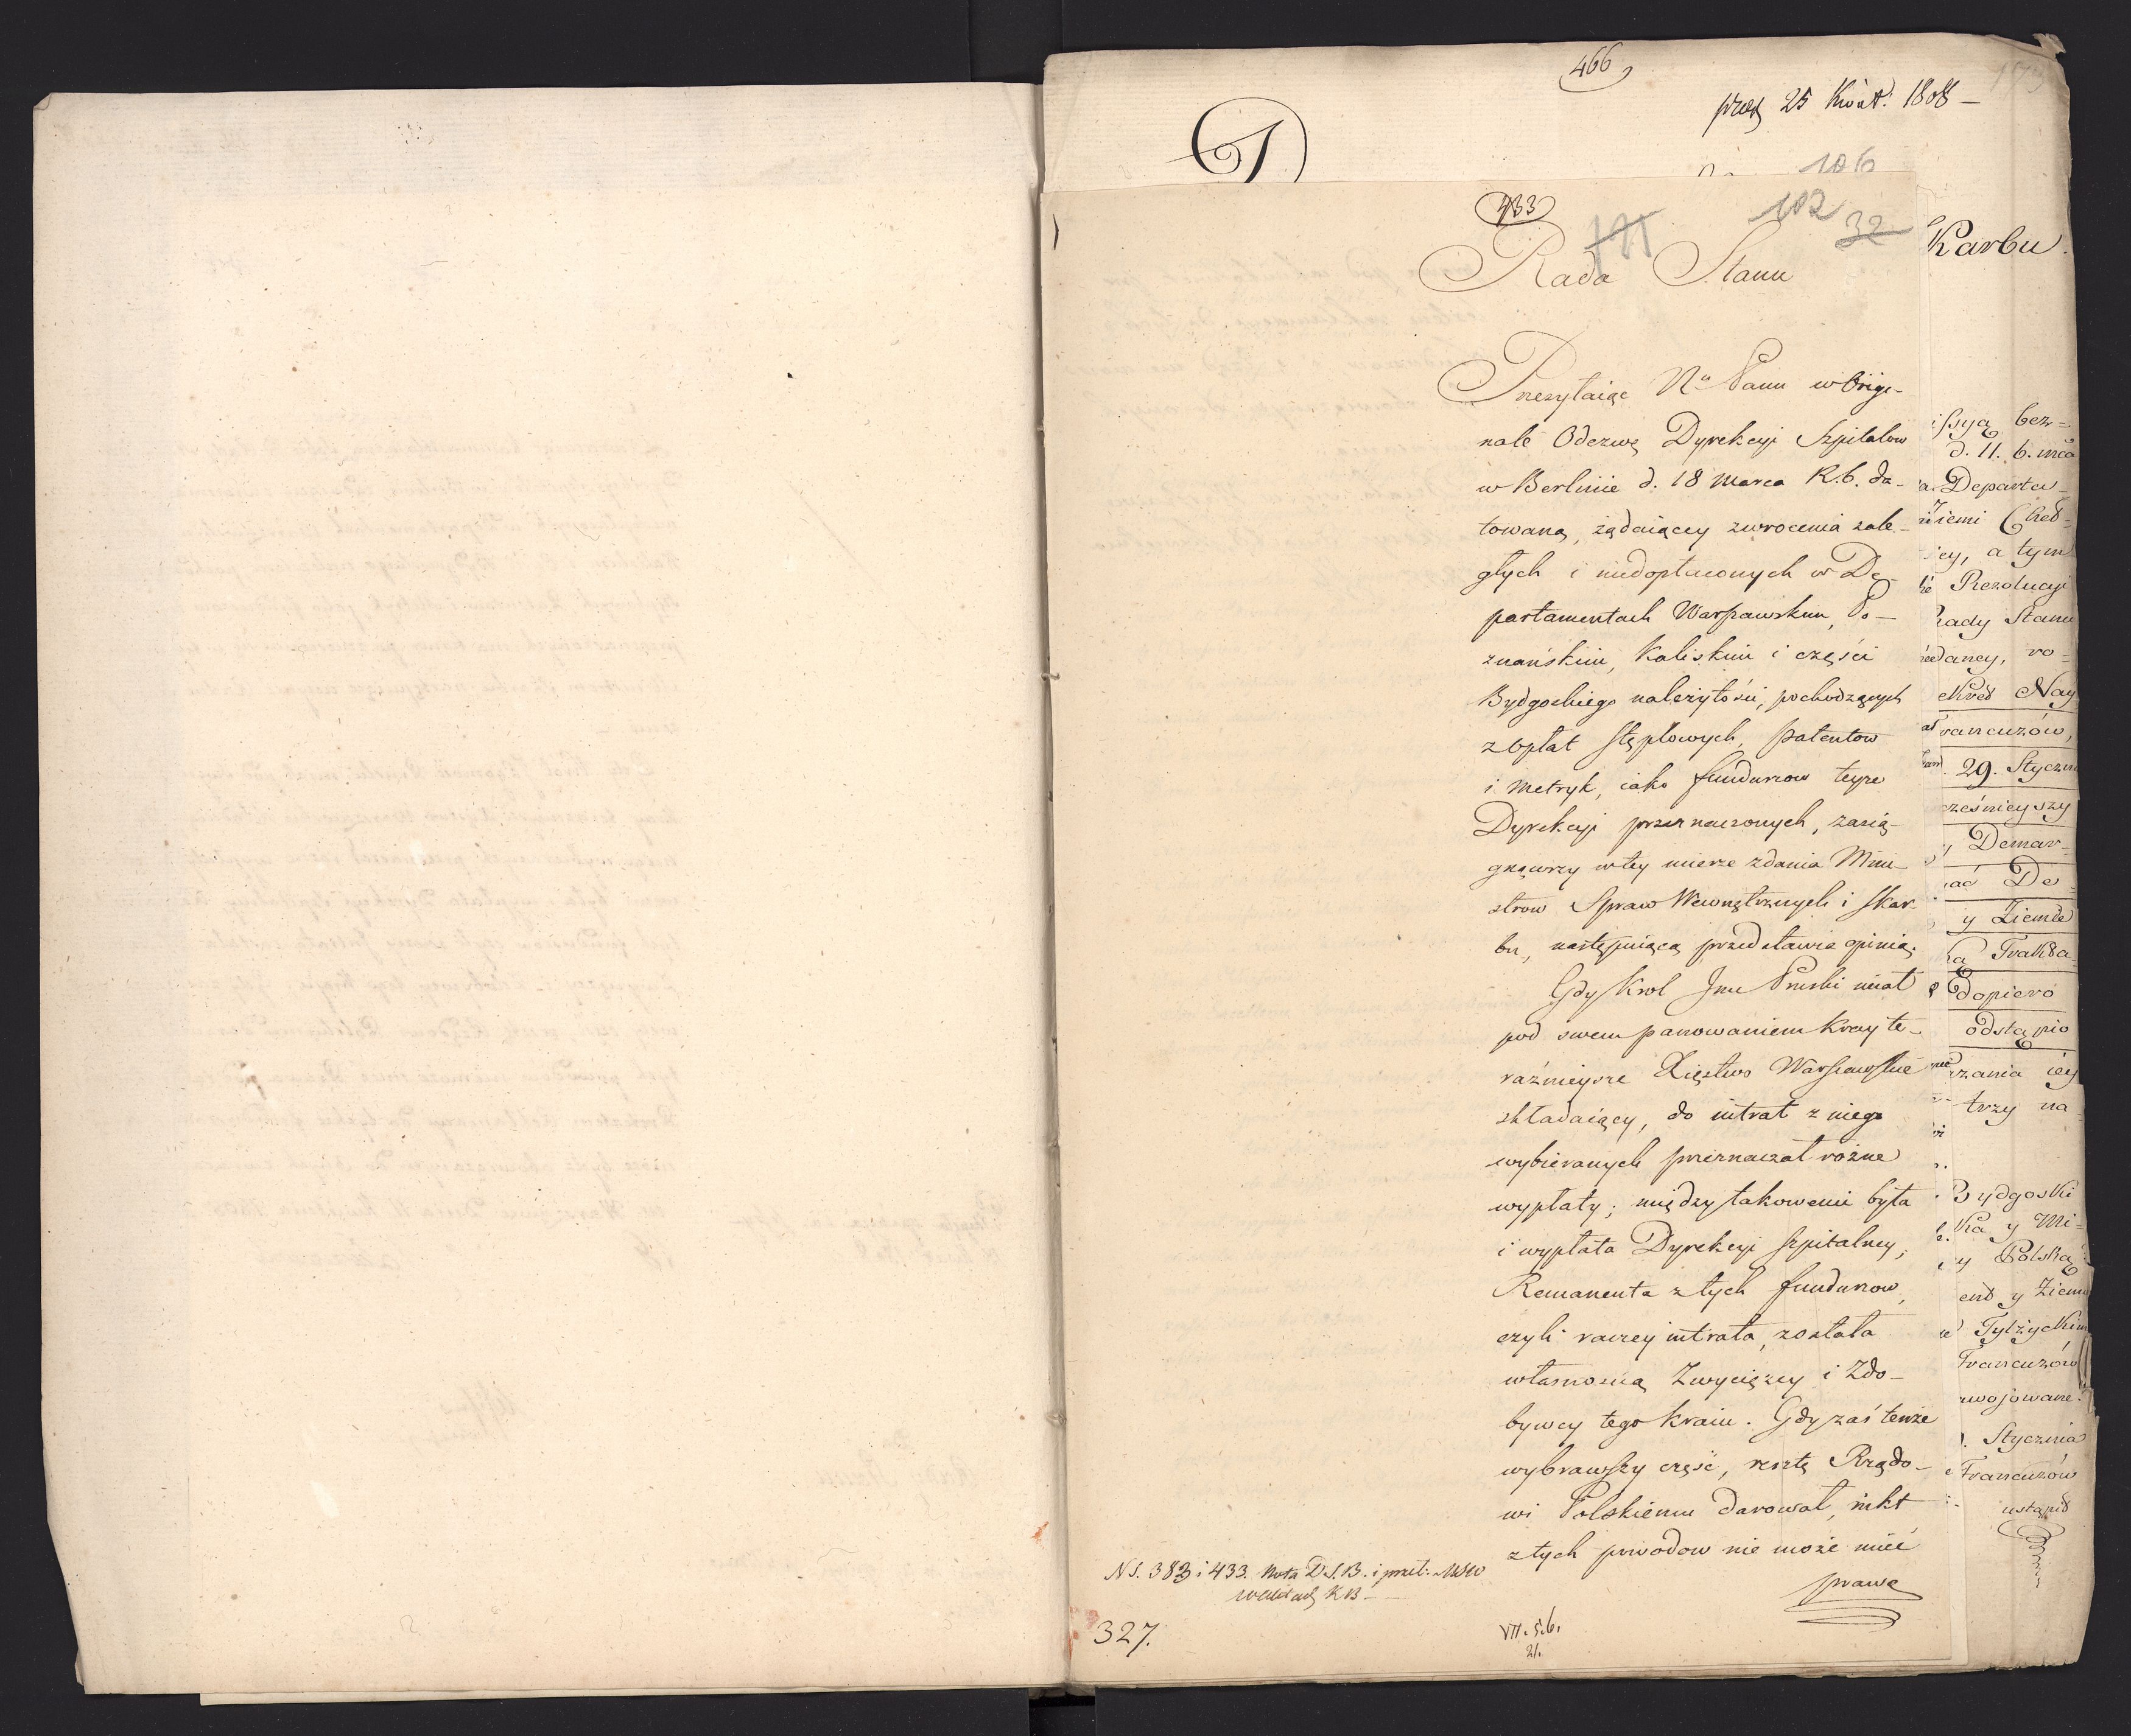 466
25 Kwiet: 1808 –
106
433
102
32
Rada Stanu
Przesyłaiąc Nu Panu w Origi-
nale Odezwę Dyrekcyi Szpitalow
w Berlinie d. 18 Marca R. b. da-
towaną, żądaiącey zwrocenia zale-
głych i niedopłaconych w De-
partamentach Warszawskim, Po-
znańskim, Kaliskim i części
Bydgoskiego należytości, pochodzących
z Opłat stęplowych, Patentow
i Metryk, iako funduszow teyże
Dyrekcyi przeznaczonych, zasią-
gnąwszy w tey mierze zdania Mini-
strow Spraw Wewnętrznych i Skar-
bu, następuiącą przedstawia opinią.
Gdy Krol Jmc Pruski miał
pod swem panowaniem Kray te-
raźnieysze Xięstwo Warszawskie
składaiący, do intrat z niego
wybieranych przeznaczał rożne
wypłaty; między takowemi była
i wypłata Dyrekcyi szpitalney,
Remanenta z tych funduszow,
czyli raczey intrata, została
własnością Zwycięzcy i Zdo-
bywcy tego Kraiu. Gdy zaś tenże
wybrawszy część, resztę Rządo-
wi Polskiemu darował, nikt
z tych powodow nie może mieć
prawa
NS. 383 i 433. Nota D.S.B. i
327.
VII. 5. 6.
21.
Karbu.
bez=
d. 11. b. mca
Departa-
Ziemi Cheł=
a tym
Rezolucyi
Rady Stanu
daney, ro=
Nay
Francuzów,
29. Styczn
cześnieyszy
Demar=
De=
y Ziemie
Trakta=
dopiero
odstąpio
iey
trzy na=
Bydgoski
ka y Mi=
y Polską
y Ziemi
Tylżyckim
Francuzów
zwojowane.
Stycznia
Francuzów
ustąpił